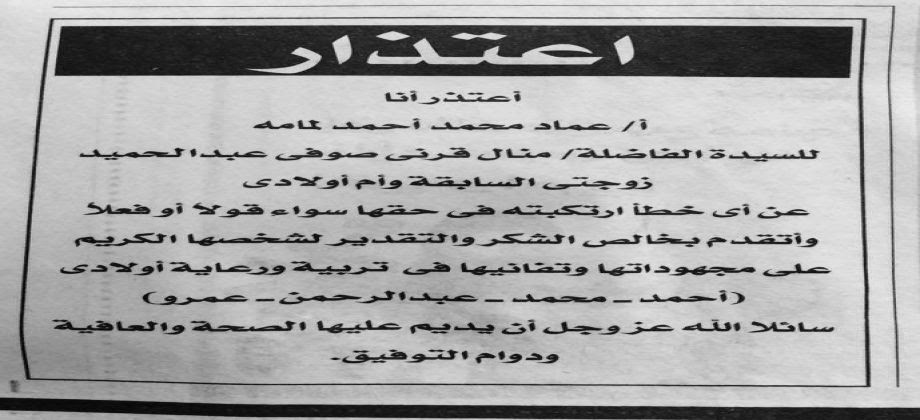 اعتذار
أعتذر أنا
أ/ عماد محمد أحمد لمامه
للسيدة الفاضلة/ منال قرنى صوفى عبدالحميد
زوجتى السابقة وأم أولادى
عن أى خطأ ارتكبته فى حقها سواء قولا أو فعلا
وأتقدم بخالص الشكر والتقدير لشخصها الكريم
على مجهوداتها وتفانيها فى تربية ورعاية أولادى
(أحمد - محمد - عبدالرحمن - عمرو)
سائلا الله عز وجل أن يديم عليها الصحة والعافية
ودوام التوفيق.